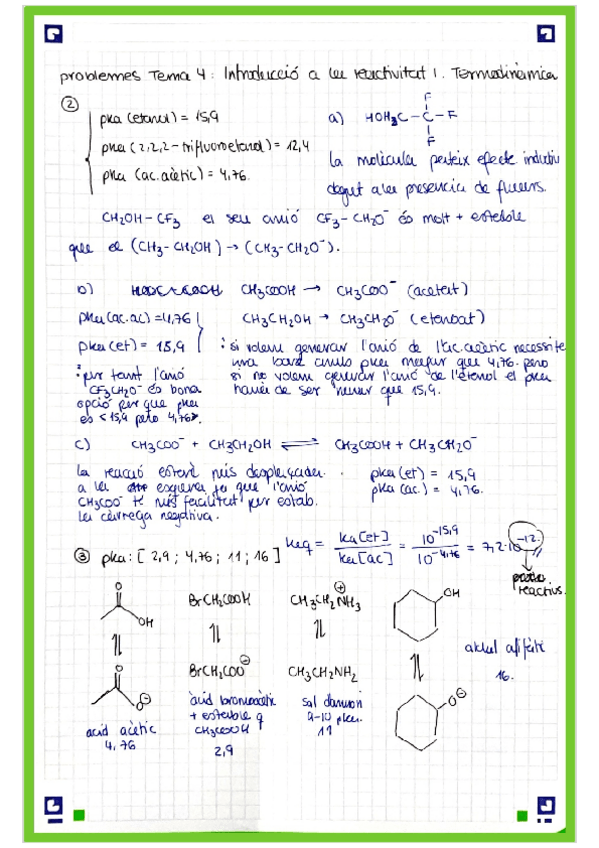 problemes Tema 4: Introducció a la reactivitat 1. Termodinàmica
②
pka (etanol) = 15,9
pka (2,2,2-trifluoroetanol) = 12,4
pka (ac. acètic) = 4,76.
a) HOH₂C – C – F
F
F
la molècula pateix efecte inductiu
degut a la presencia de fluors.
CH₂OH – CF₃ el seu anió CF₃-CH₂O⁻ és molt + estable
que el (CH₃-CH₂OH) → (CH₃-CH₂O⁻).
b) CH₃COOH → CH₃COO⁻ (acetat)
pka (ac.ac) = 4,76
CH₃CH₂OH → CH₃CH₂O⁻ (etanoat)
pka (et) = 15,9
: si volem generar l'anió de l'ac. acètic necessite
una base amb pka major que 4,76. pero
si no volem generar l'anió de l'etanol el pka
haurà de ser menor que 15,9.
: per tant l'anió
CF₃CH₂O⁻ és bona
opció per que pka
és <15,9 pero 4,76>.
c) CH₃COO⁻ + CH₃CH₂OH ⇌ CH₃COOH + CH₃CH₂O⁻
la reacció estarà més desplaçada
a la esquerra ja que l'anió
CH₃COO⁻ té més facilitat per estab.
la càrrega negativa.
pka (et) = 15,9
pka (ac.) = 4,76.
Keq = Ka[et] / Ka[ac] = 10^-15,9 / 10^-4,76 = 7,2·10^-12
reactius.
③ pka: [2,9 ; 4,76 ; 11 ; 16]
O
OH
BrCH₂COOH
CH₃CH₂NH₃ ⊕
OH
O
O⊖
BrCH₂COO⊖
CH₃CH₂NH₂
O⊖
àcid acètic
4,76
àcid bromoacètic
+ estable q
CH₃COOH
2,9
sal d'amoni
9-10 pka.
11
alcohol alifàtic
16.